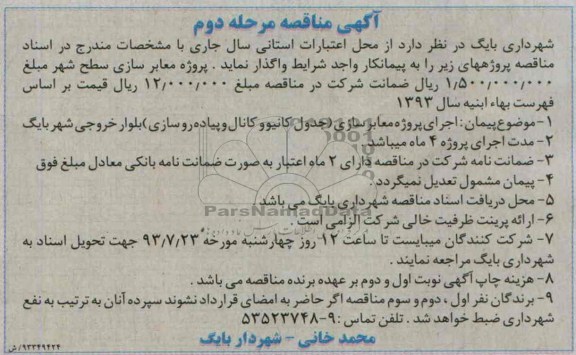 آگهی مناقصه مرحله دوم
شهرداری بایگ در نظر دارد از محل اعتبارات استانی سال جاری با مشخصات مندرج در اسناد
مناقصه پروژههای زیر را به پیمانکار واجد شرایط واگذار نماید . پروژه معابر سازی سطح شهر مبلغ
۱/۵۰۰/۰۰۰/۰۰۰ ریال ضمانت شرکت در مناقصه مبلغ ۱۲/۰۰۰/۰۰۰ ریال قیمت بر اساس
فهرست بهاء ابنیه سال ۱۳۹۳
۱-موضوع پیمان: اجرای پروژه معابر سازی (جدول کانیوو کانال و پیاده رو سازی) بلوار خروجی شهر بایگ
۲- مدت اجرای پروژه ۴ ماه میباشد
۳- ضمانت نامه شرکت در مناقصه دارای ۲ ماه اعتبار به صورت ضمانت نامه بانکی معادل مبلغ فوق
۴- پیمان مشمول تعدیل نمیگردد .
۵- محل دریافت اسناد مناقصه شهرداری بایگ می باشد
ParsNamadData
۶- ارائه پرینت ظرفیت خالی شرکت الزامی است .
۷- شرکت کنندگان میبایست تا ساعت ۱۲ روز چهارشنبه مورخه ۹۳/۷/۲۳ جهت تحویل اسناد به
شهرداری بایگ مراجعه نمایند .
۸- هزینه چاپ آگهی نوبت اول و دوم بر عهده برنده مناقصه می باشد .
۹- برندگان نفر اول ، دوم و سوم مناقصه اگر حاضر به امضای قرارداد نشوند سپرده آنان به ترتیب به نفع
شهرداری ضبط خواهد شد . تلفن تماس :۹-۵۳۵۲۳۷۴۸
محمد خانی - شهردار بایگ
۹۳۳۴۹۴۲۴/ش